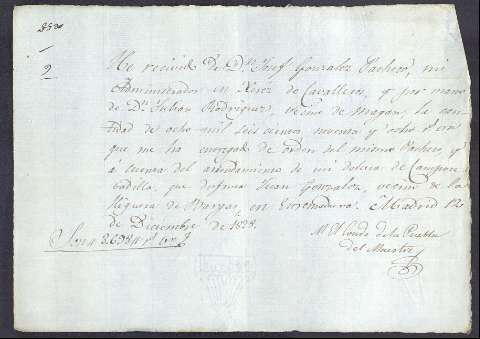 2
He recivido de Dn. Josef Gonzalez Pacheco, mi
Administrador en Xerez de Cavalleros, y por mano
de Dn. Julian Rodriguez, vecino de la
cantidad de ocho mil seis cientos noventa y ocho rs. von.
que me ha entregado de orden del mismo Pacheco, y
á cuenta del arrendamiento de mi dehesa de
que disfruta Juan Gonzalez, vecino de la
Higuera de Vargas, en Extremadura. Madrid 12
de Diciembre de 1828.
Son
El Conde de la Puebla
del Maestre